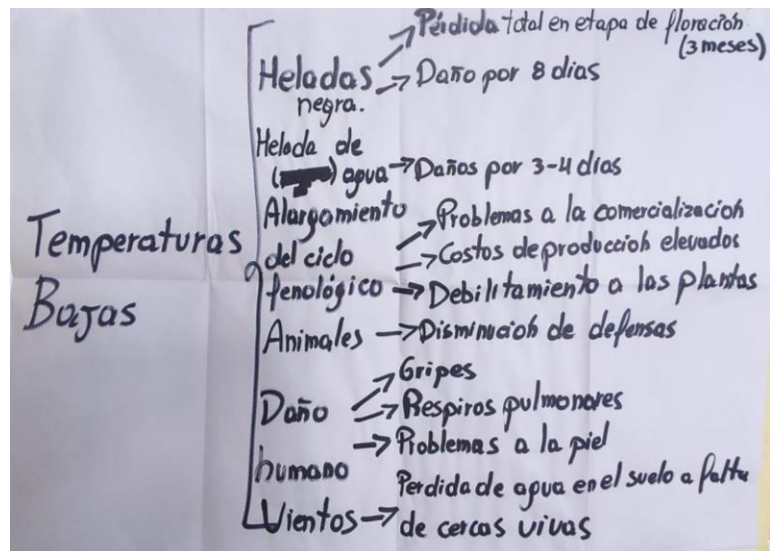 Temperaturas
Bajas
Heladas → Pérdida total en etapa de floración
(3 meses)
negra. → Daño por 8 dias
Helada de
( ) agua → Daños por 3-4 dias
Alargamiento → Problemas a la comercialización
del ciclo → Costos de producción elevados
fenológico → Debilitamiento a las plantas
Animales → Disminución de defensas
Daño → Gripes
→ Respiros pulmonares
humano → Problemas a la piel
Vientos → Perdida de agua en el suelo a falta
de cercas vivas